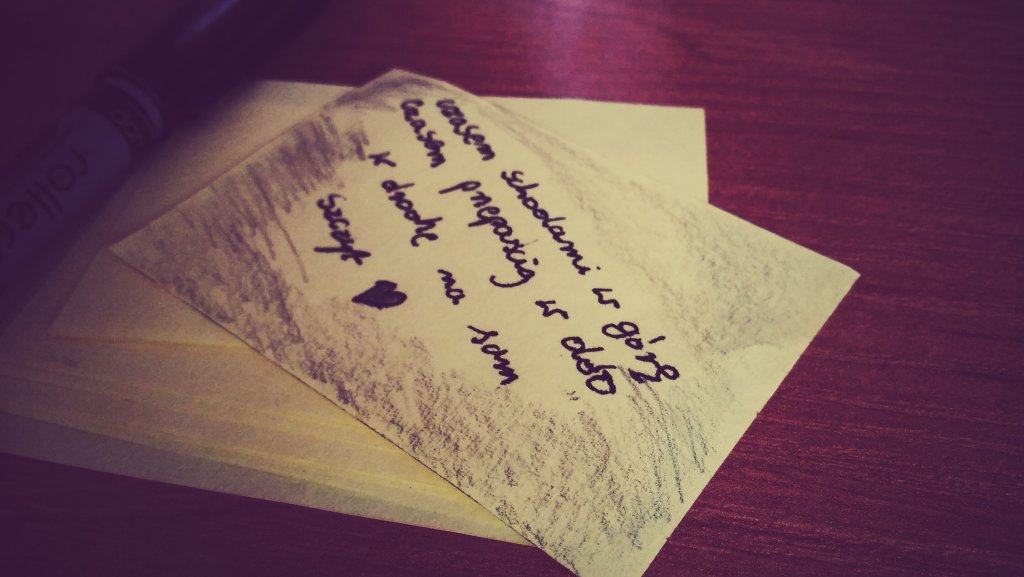 czasem schodami w górę
czasem przepaścią w dół
w drodze na sam
szczyt ♥
rolle